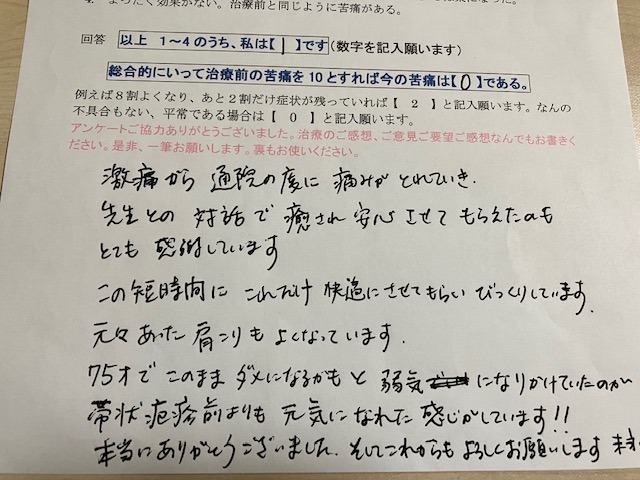 4. まったく効果がない。治療前と同じように苦痛がある。
回答 以上 1~4のうち、私は【 1 】です(数字を記入願います)
総合的にいって治療前の苦痛を10とすれば今の苦痛は【 0 】である。
例えば8割よくなり、あと2割だけ症状が残っていれば【 2 】と記入願います。なんの
不具合もない、平常である場合は【 0 】と記入願います。
アンケートご協力ありがとうございました。治療のご感想、ご意見ご要望ご感想なんでもお書きく
ださい。是非、一筆お願いします。裏もお使いください。
激痛から 通院の度に 痛みがとれていき、
先生との 対話で 癒され 安心させて もらえたのも
とても 感謝しています
この短時間に これだけ 快適にさせてもらい びっくりしています。
元々あった 肩こりも よくなっています。
75才で このまま ダメになるかもと 弱気になりかけていたのが
帯状疱疹前よりも 元気に なれた 感じがしています!!
本当にありがとうございました。そしてこれからも よろしくお願いします